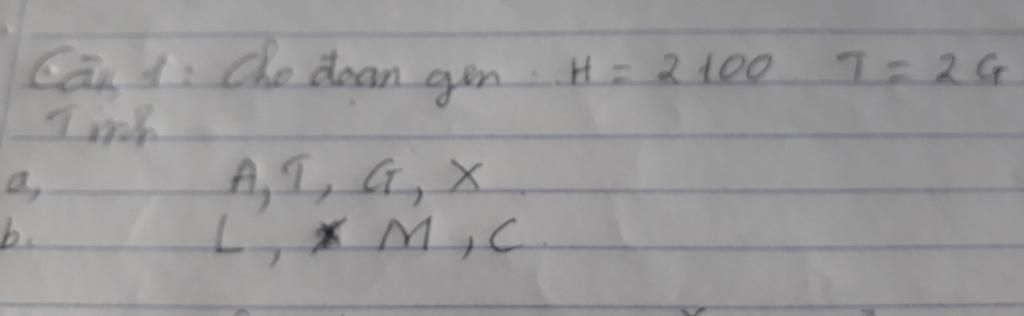 Câu 1: Cho đoạn gen : H = 2100 T = 2G
Tính
a, A, T, G, X.
b. L, M, C.